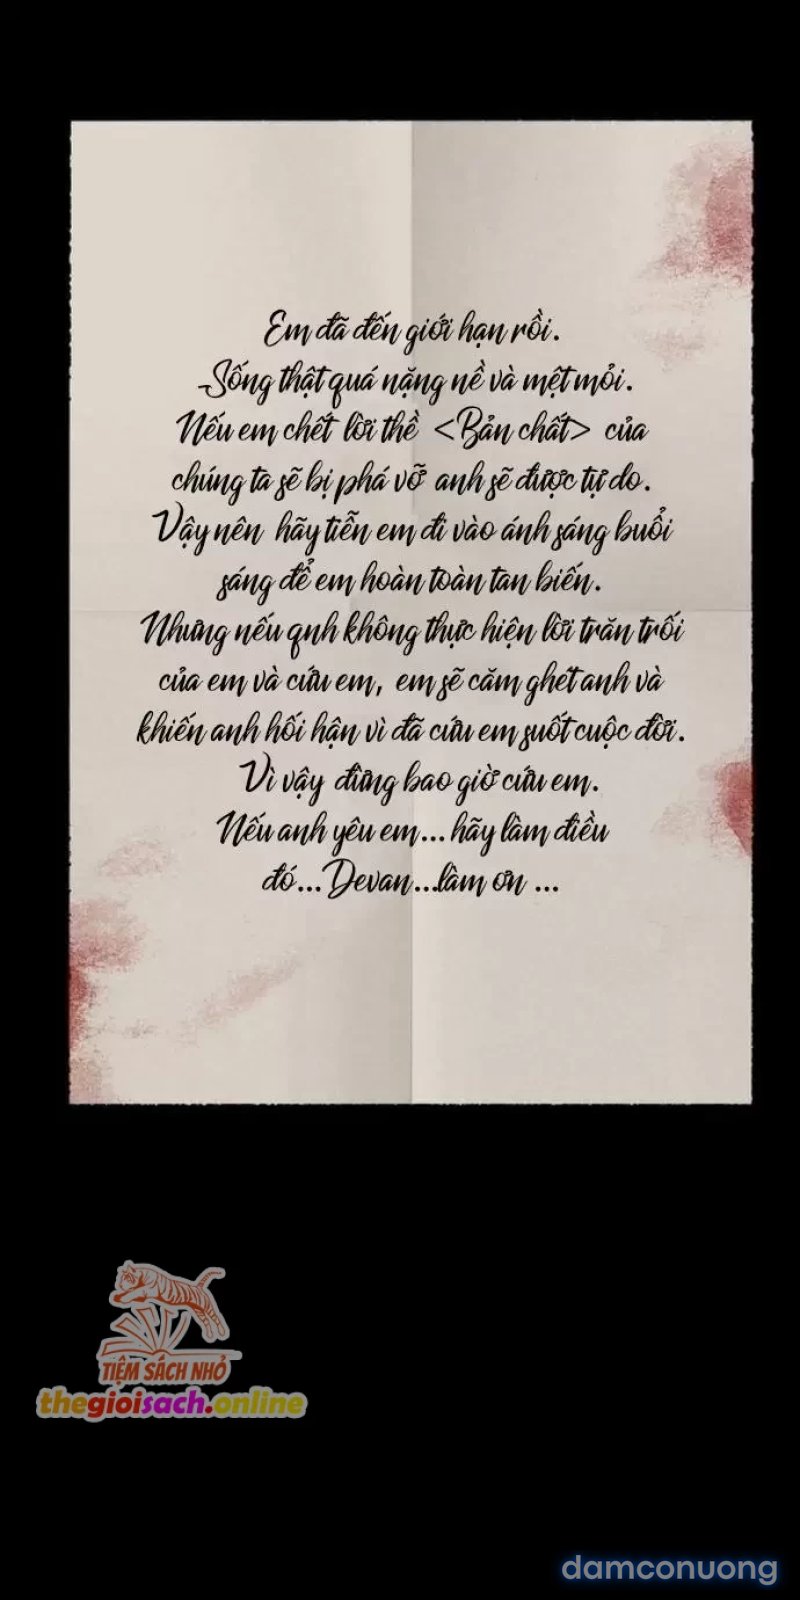 Em đã đến giới hạn rồi.
Sống thật quá nặng nề và mệt mỏi.
Nếu em chết lời thề <Bản chất> của
chúng ta sẽ bị phá vỡ anh sẽ được tự do.
Vậy nên hãy tiễn em đi vào ánh sáng buổi
sáng để em hoàn toàn tan biến.
Nhưng nếu qnh không thực hiện lời trăn trối
của em và cứu em, em sẽ căm ghét anh và
khiến anh hối hận vì đã cứu em suốt cuộc đời.
Vì vậy đừng bao giờ cứu em.
Nếu anh yêu em... hãy làm điều
đó... Devan...làm ơn ...
TIỆM SÁCH NHỎ
thegioisach.online
damconuong